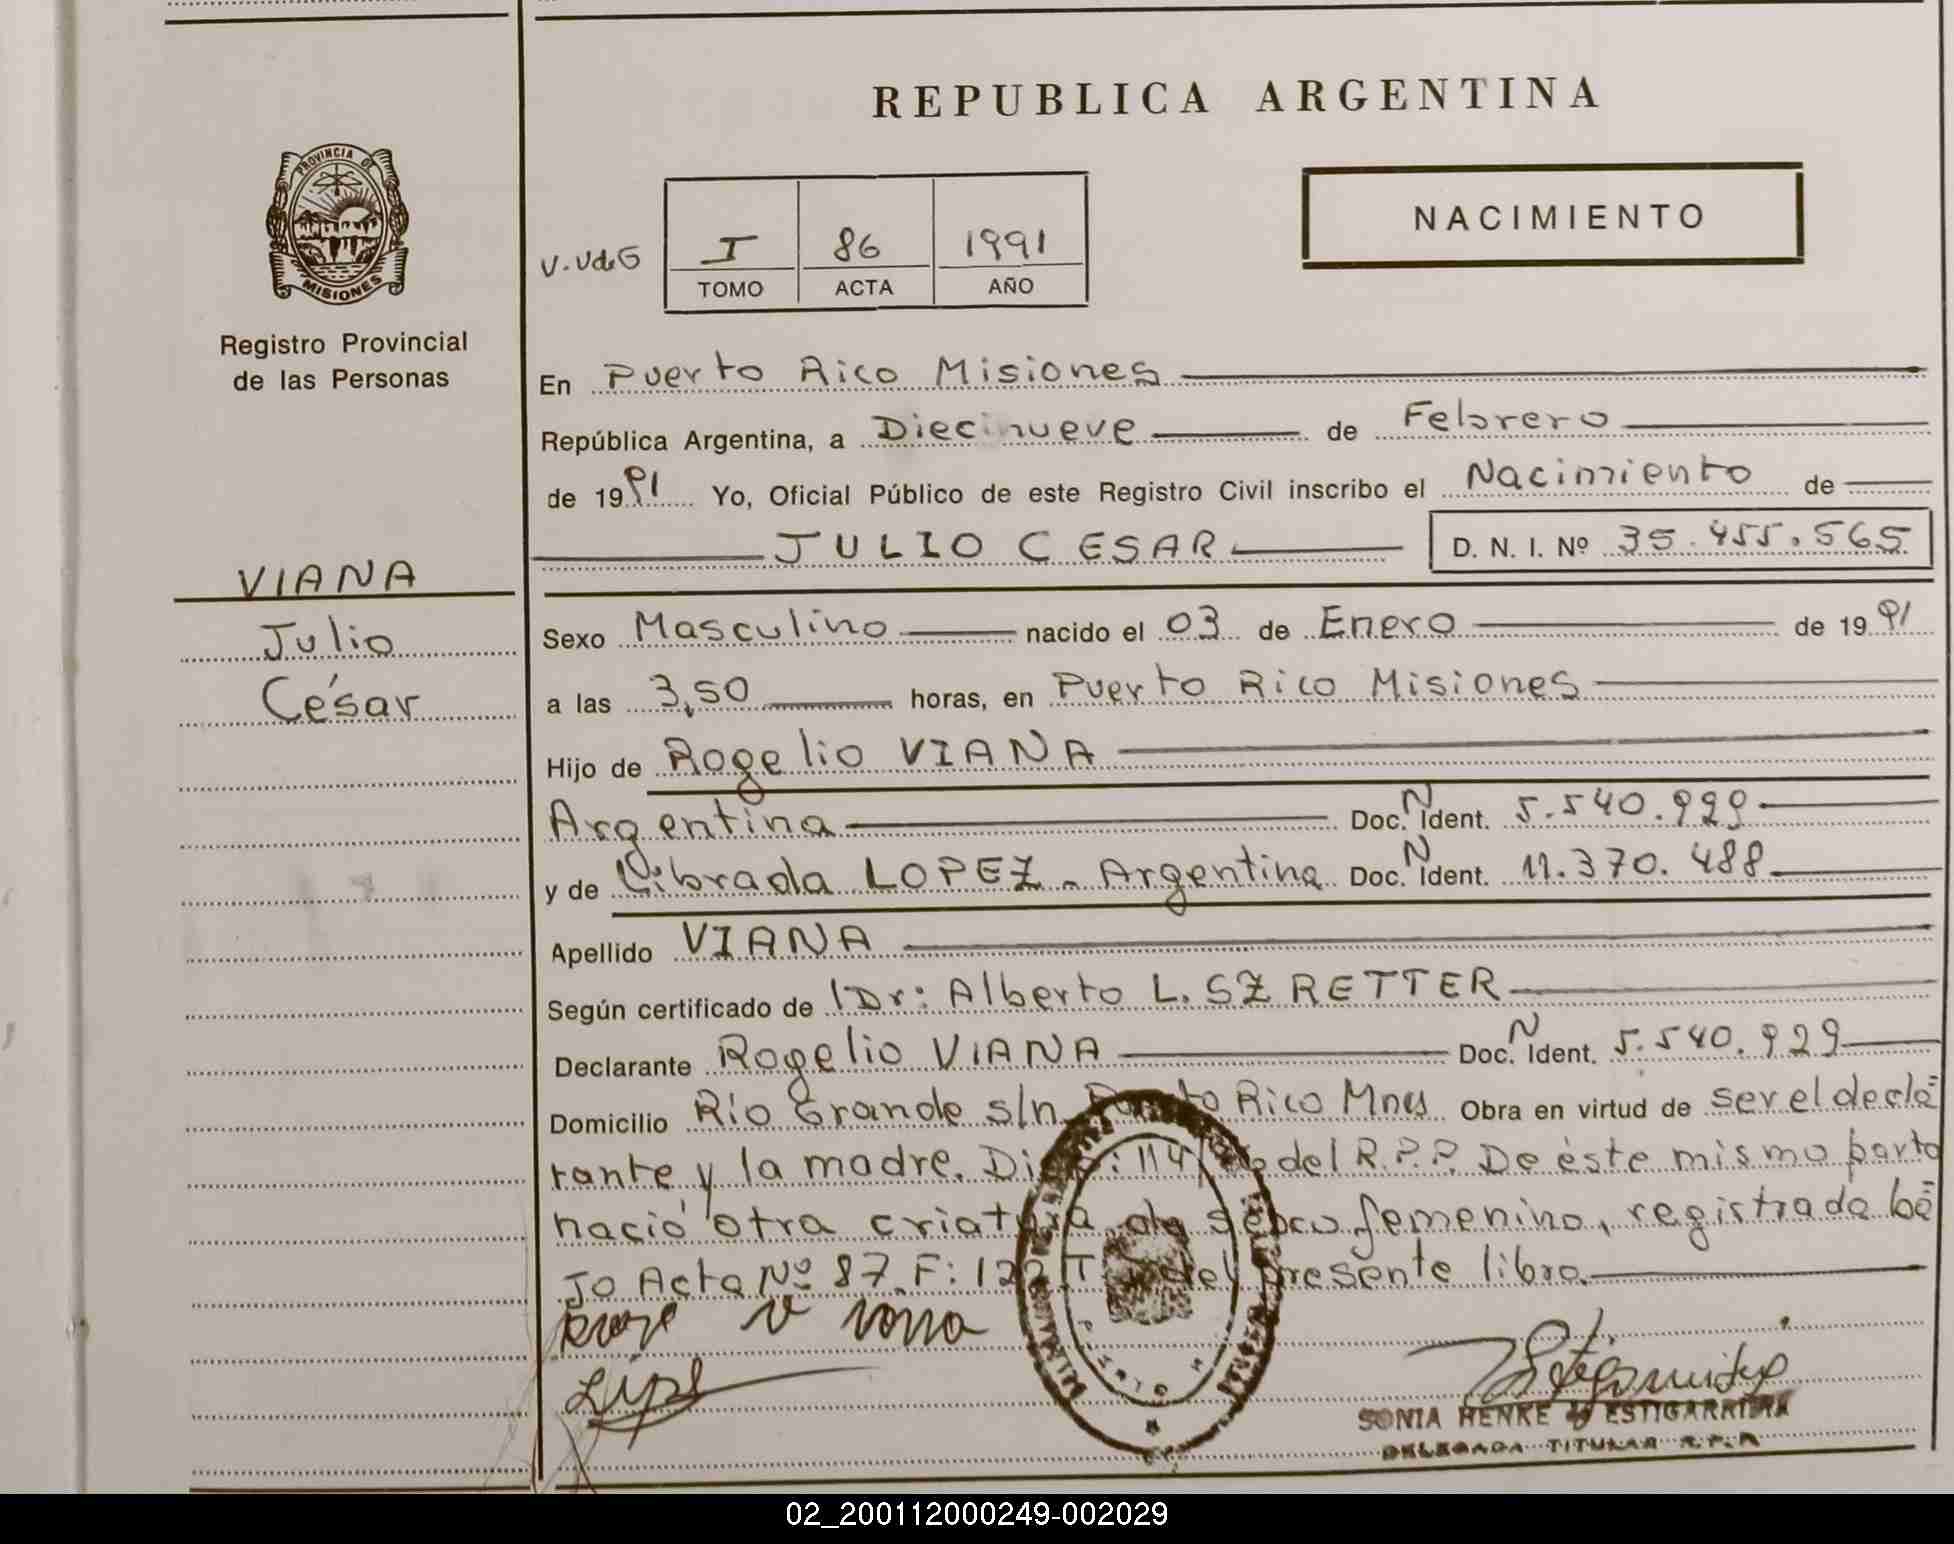 REPUBLICA ARGENTINA
NACIMIENTO
PROVINCIA DE
MISIONES
Registro Provincial
de las Personas
V. UdeG
I 86 1991
TOMO ACTA AÑO
En Puerto Rico Misiones
República Argentina, a Diecinueve de Febrero
de 1991 Yo, Oficial Público de este Registro Civil inscribo el Nacimiento de
JULIO CESAR D. N. I. Nº 35.455.565
VIANA
Julio
César
Sexo Masculino nacido el 03 de Enero de 1991
a las 3,50 horas, en Puerto Rico Misiones
Hijo de Rogelio VIANA
Argentina Doc. N Ident. 5.540.929
y de Librada LOPEZ - Argentina Doc. N Ident. 11.370.488
Apellido VIANA
Según certificado de Dr: Alberto L. SZRETTER
Declarante Rogelio VIANA Doc. N Ident. 5.540.929
Domicilio Río Grande s/n Puerto Rico Mnes Obra en virtud de ser el decla
rante y la madre. 114/ del R.P.P. De éste mismo parto
nació otra criatura de sexo femenino, registrada bá
Jo Acta Nº 87 F: T del presente libro.
SONIA HENKE de ESTIGARRIBIA
DELEGADA TITULAR R.P.P.
02_200112000249-002029